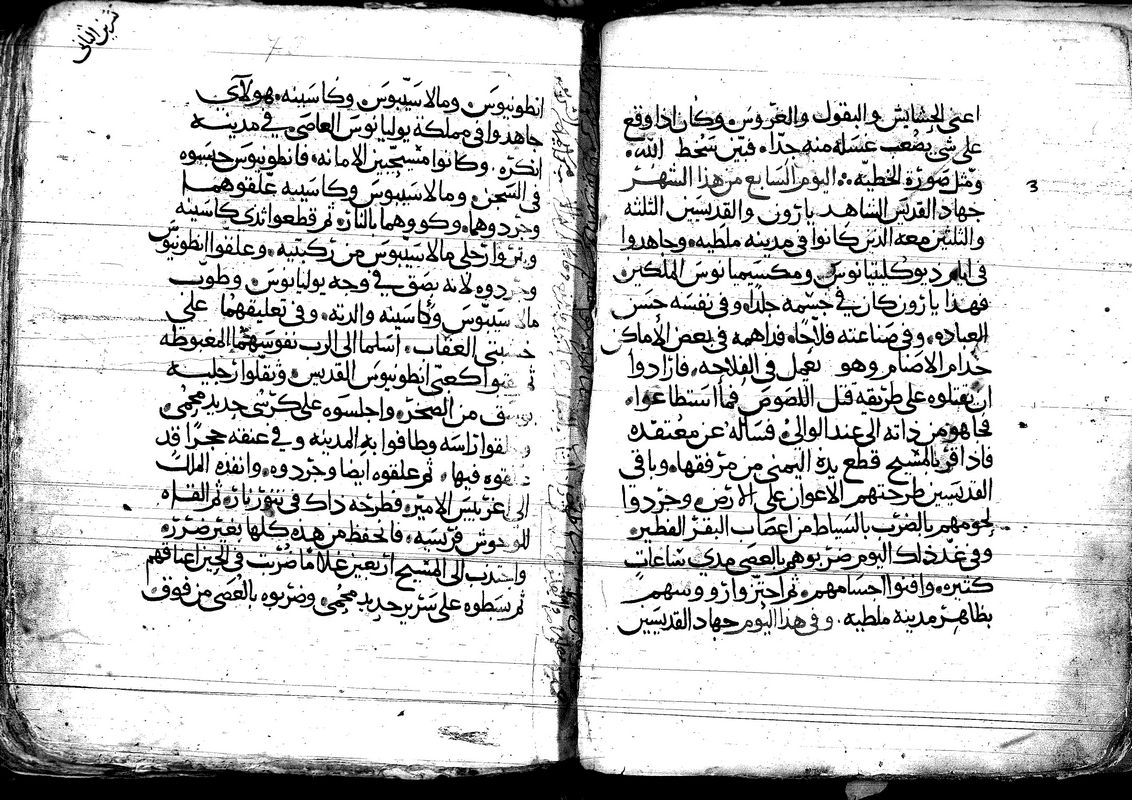 اعني الحشايش والبقول والغروس. وكان اذا وقع
على شي يصعب عسله منه جدا. فبين سخط الله.
ومثل صورة الخطيه. اليوم السابع من هذا الشهر
جهاد القديس الشاهد يارون والقديسين الثلثه
والثلثين معه الذين كانوا في مدينه ملطيه. وجاهدوا
في ايام ديوكليتيانوس ومكسيميانوس الملكين
فهذا يارون كان في جسمه جلدا. وفي نفسه حسن
العباده. وفي صناعته فلاحا. فداهمه في بعض الاماكن
خدام الاصنام وهو يعمل في الفلاحه. فارادوا
ان يقتلوه على طريقه قتل اللصوص فما استطاعوا.
فجا هو من ذاته الى عند الوالي. فساله عن معتقده
فاذ اقر بالمسيح قطع يده اليمنى من مرفقها. وباقي
القديسين طرحتهم الاعوان على الارض وجردوا
لحومهم بالضرب بالسياط من اعصاب البقر الفطير.
وفي غد ذلك اليوم ضربوهم بالعصي مدي ساعات
كتيره. وافنوا اجسامهم. ثم احتزوا رووسهم
بظاهر مدينه ملطيه. وفي هذا اليوم جهاد القديسين
3
تشرين الثاني
انطونيوس ومالاسيبوس وكاسينه. هولاي
جاهدوا في مملكة يوليانوس العاصي في مدينه
انكره. وكانوا مسيحيين الامانه. فانطونيوس حبسوه
في السجن. ومالاسيبوس وكاسينه علقوهما
وجردوهما. وكووهما بالنار. ثم قطعوا ثدي كاسينه
وبتروا رجلي مالاسيبوس من ركبتيه. وعلقوا انطونيوس
وجردوه لانه بصق في وجه يوليانوس. وطوب
مالاسيبوس وكاسينه والدته. وفي تعليقهما على
خشبتي العقاب. اسلما الى الرب نفوسهما المغبوطه
كعبي انطونيوس القديس. وثقلوا رجليه
من الصخر. واجلسوه على كرسي حديد محمي.
راسه وطافوا به المدينه وفي عنقه حجرا قد
فيها. ثم علقوه ايضا وجردوه. وانفذه الملك
الى اغريبس الامير. فطرحه ذاك في تنور نار. ثم القاه
للوحوش فريسه. فانحفظ من هذه كلها بغير ضرر.
واجتذب الى المسيح اربعين غلاما ضربت في الحين اعناقهم
ثم بسطوه على سرير حديد محمي. وضربوه بالعصي من فوق